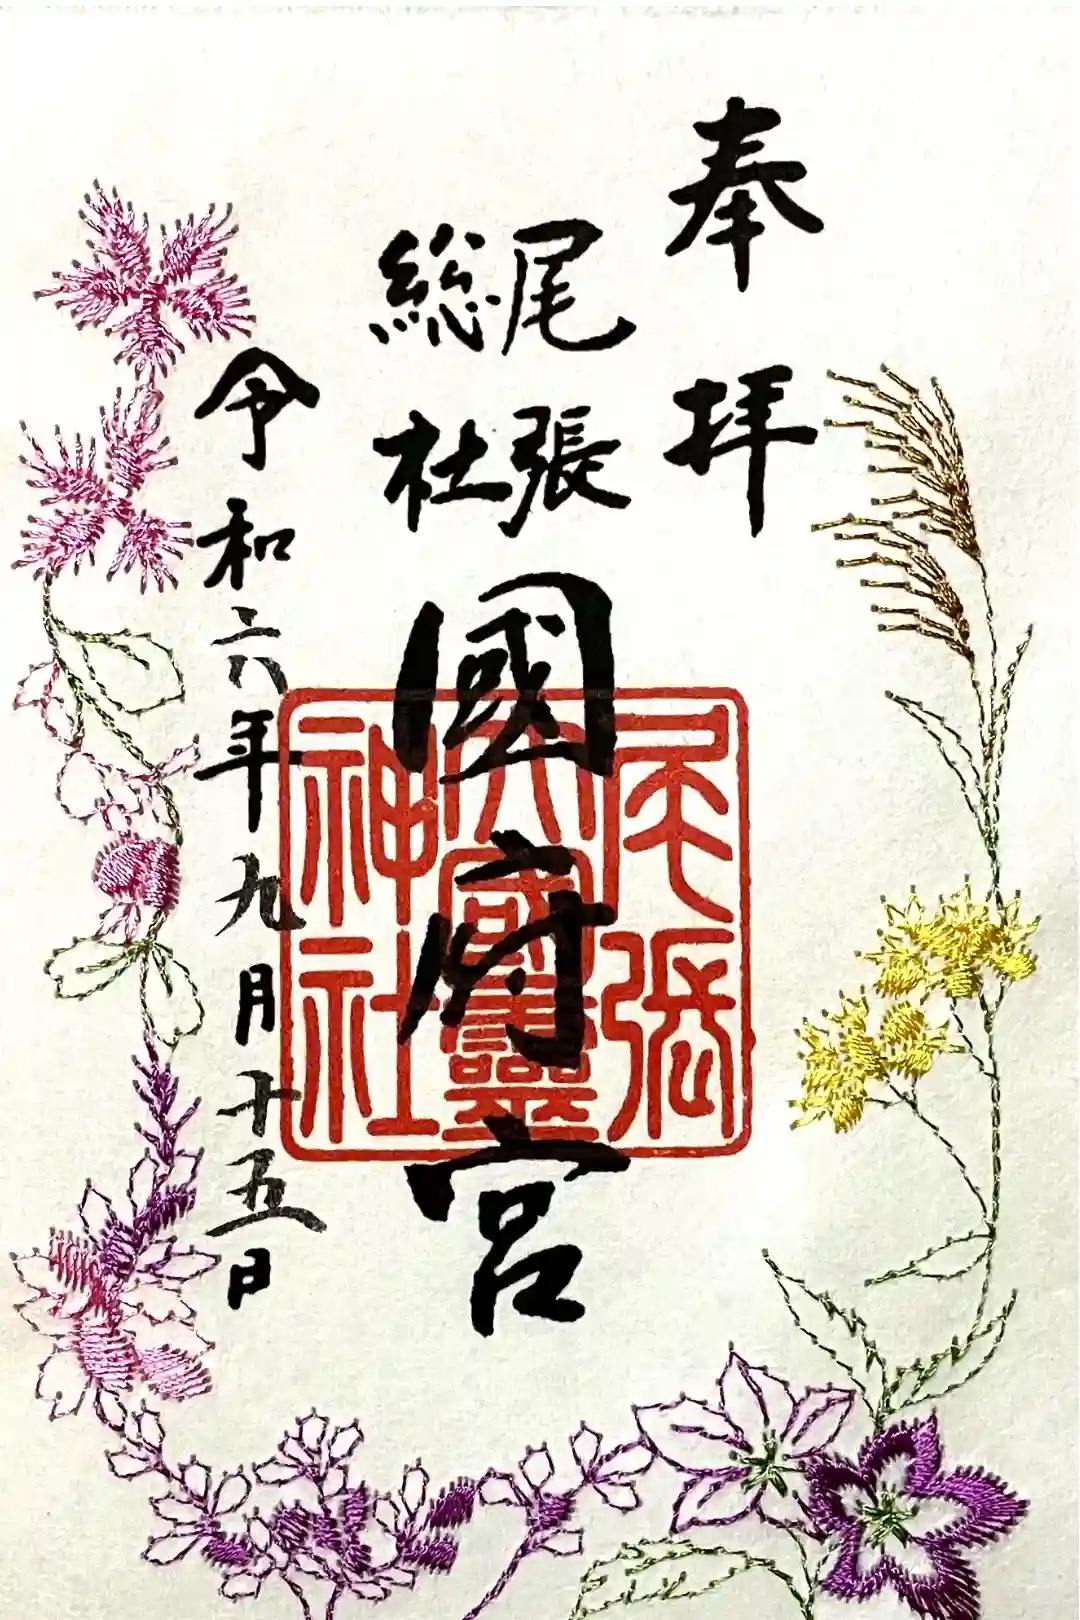 奉拝
尾張
総社
國府宮
令和六年九月十五日
尾張
大國霊
神社